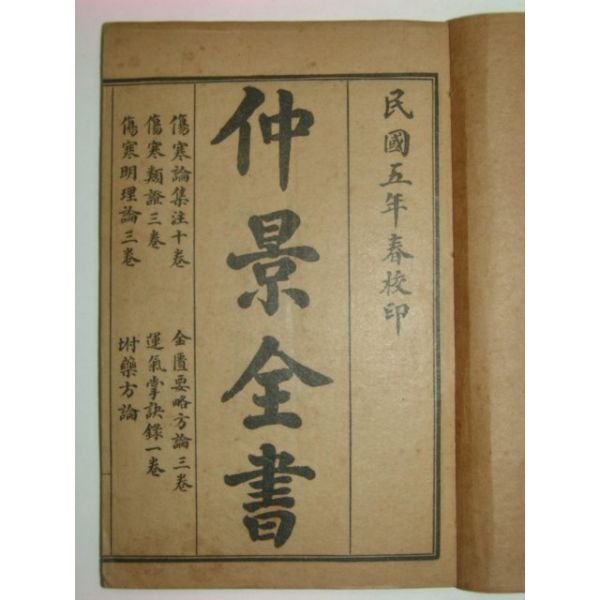 民國五年春校印
仲景全書
傷寒論集注十卷
金匱要略方論三卷
傷寒類證三卷
運氣掌訣錄一卷
傷寒明理論三卷
坿藥方論